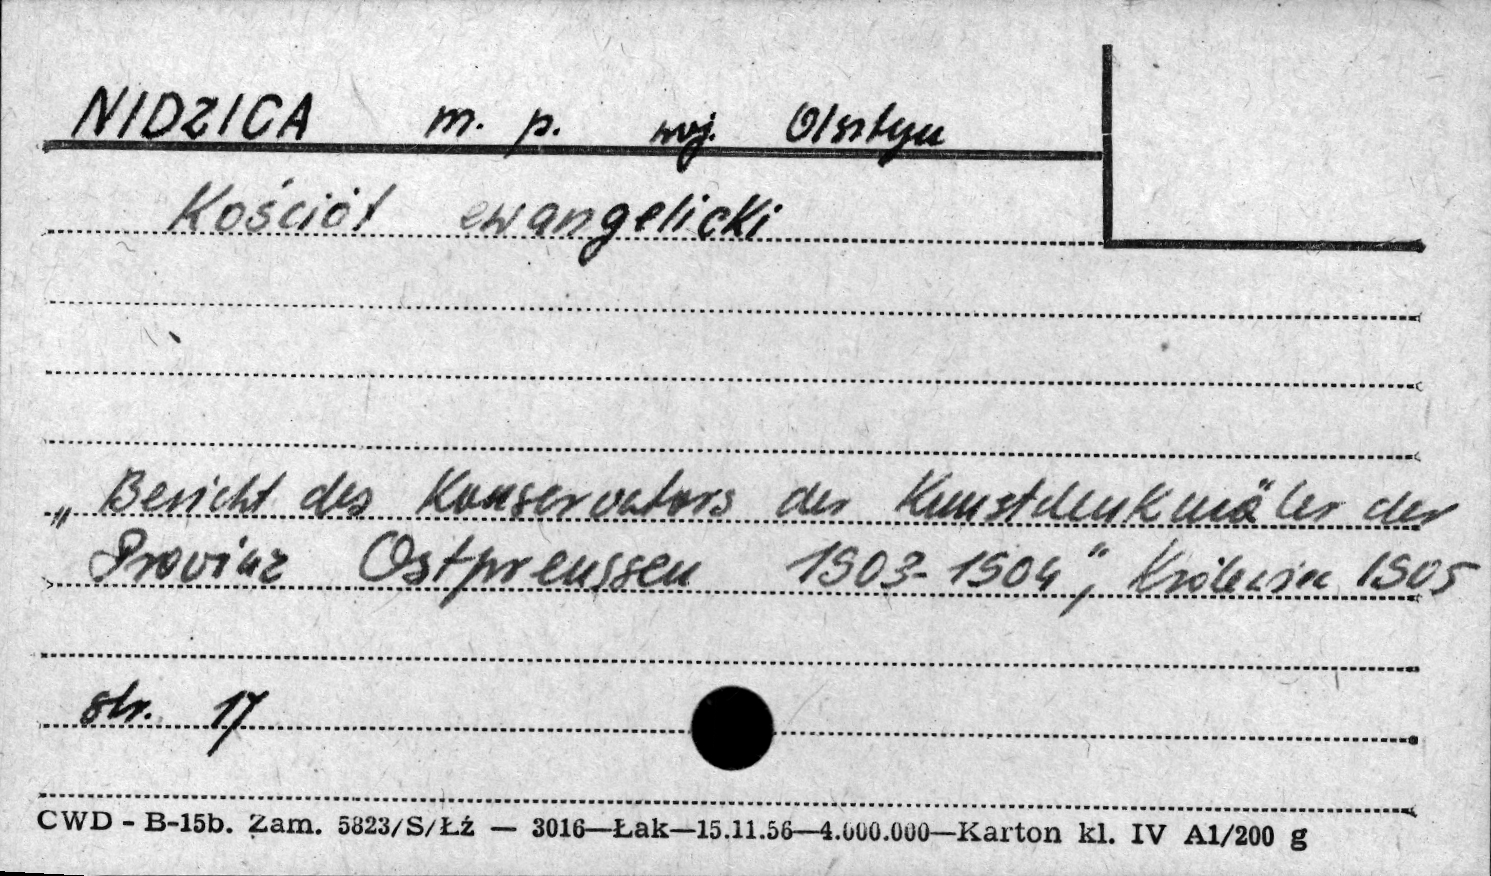 NIDZICA m. p. woj. Olsztyn
Kościół ewangelicki
„Bericht des Konservators der Kunstdenkmäler der
Provinz Ostpreussen 1903-1904", Królewiec 1905
str. 17
CWD - B-15b. Zam. 5823/S/Łź — 3016—Łak—15.11.56—4.000.000—Karton kl. IV A1/200 g